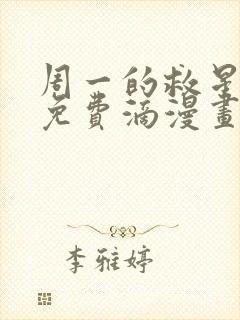 周一的救星
免费滴漫畫
李雅婷